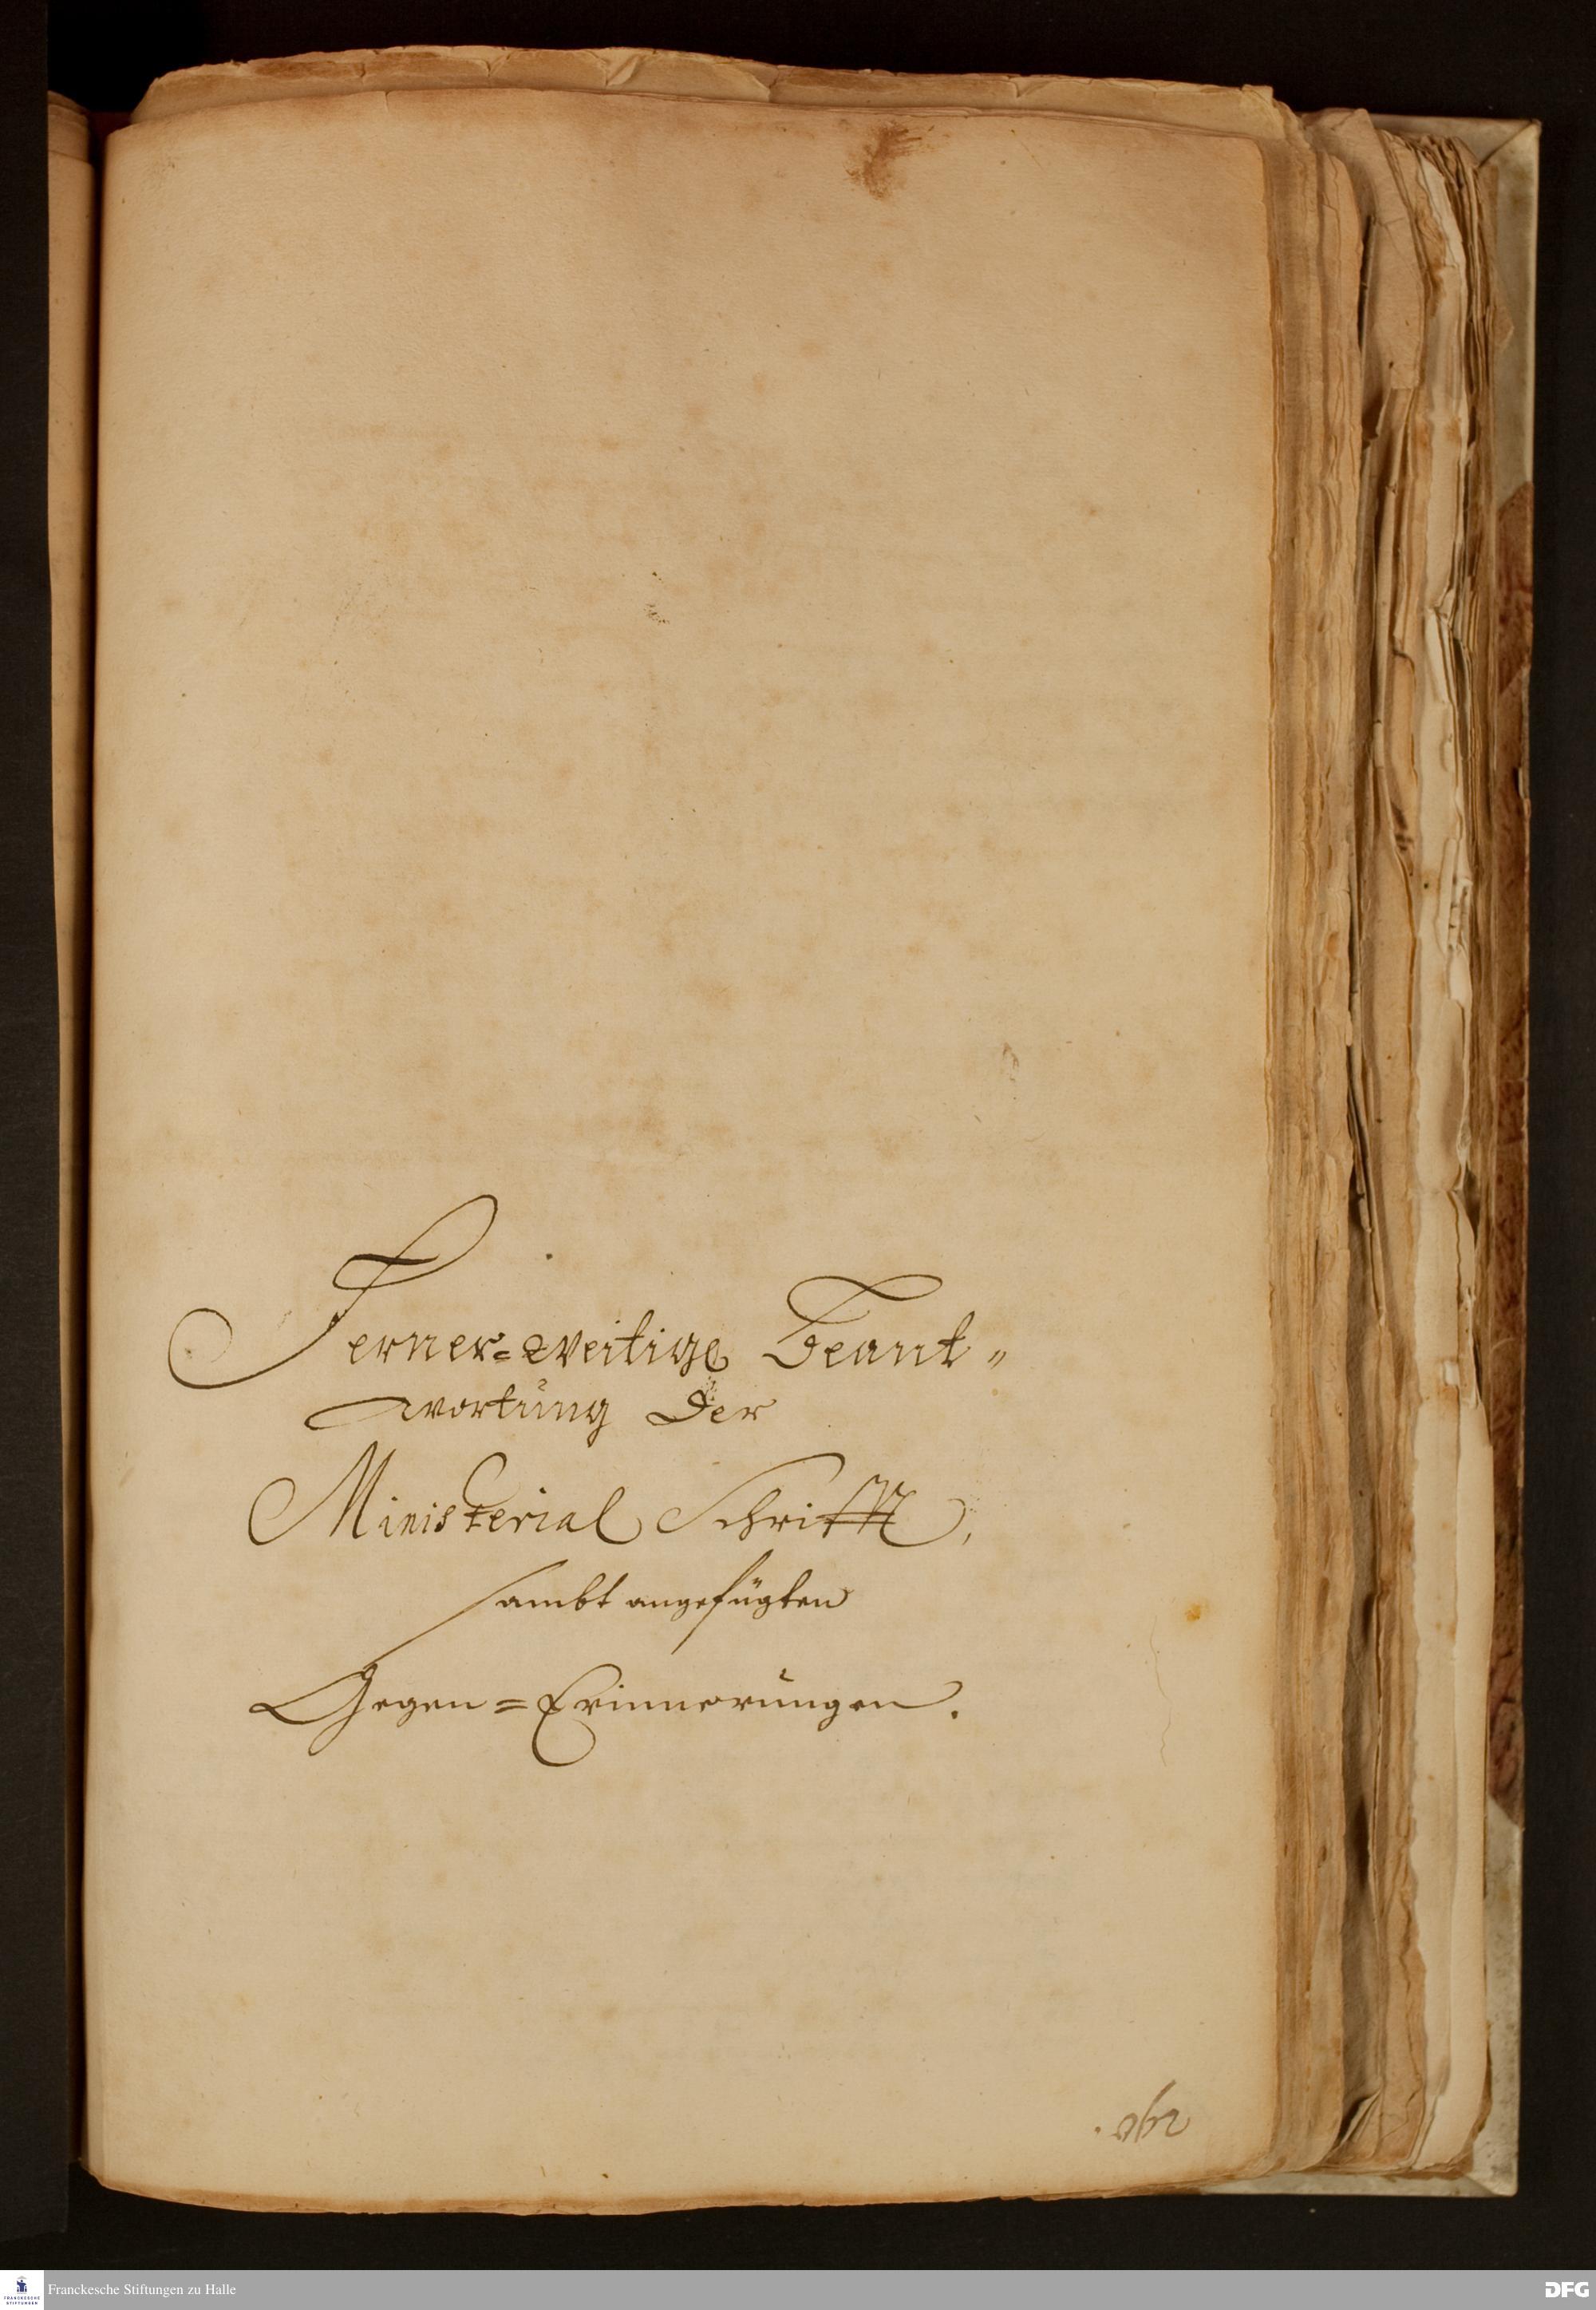 Ferner=weitige Beant„
wortung der
Ministerial Schrifft,
sambt angefügten
Gegen=Erinnerungen.
Franckesche Stiftungen zu Halle
FRANCKESCHE
STIFTUNGEN
DFG